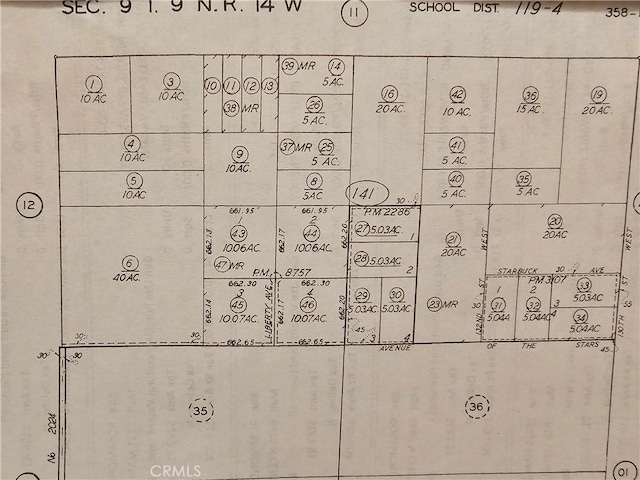 SEC. 9 T. 9 N. R. 14 W
11
SCHOOL DIST. 119-4
358-
1
10 AC
3
10 AC.
10 11 12 13
38 MR
39 MR 14
5 AC.
26
5 AC.
16
20 AC.
42
10 AC.
36
15 AC.
19
20 AC.
4
10 AC.
9
10 AC.
37 MR 25
5 AC.
41
5 AC.
5
10 AC.
8
5 AC.
40
5 AC.
35
5 AC
141
12
661.95
661.95
30
P.M. 2286
6
40 AC.
662.13
1
43
10.06 AC.
662.17
2
44
10.06 AC.
662.20
27 5.03 AC.
1
28 5.03 AC.
2
21
20 AC
WEST
20
20 AC
WEST
47 MR
P.M. 8757
662.30
662.30
STARBUCK 30 AVE
3
45
10.07 AC.
662.14
LIBERTY AVE
662.17
4
46
10.07 AC.
662.20
29
5.03 AC.
30
5.03 AC.
23 MR
30
132ND ST
P.M. 3107
1
31
5.04 A
2
32
5.04 AC
33
5.03 AC
3
4
34
5.04 AC
130TH ST
30
30
662.65
662.65
45
3
4
AVENUE OF THE STARS
45
30
30
35
36
No 2024
01
CRMLS